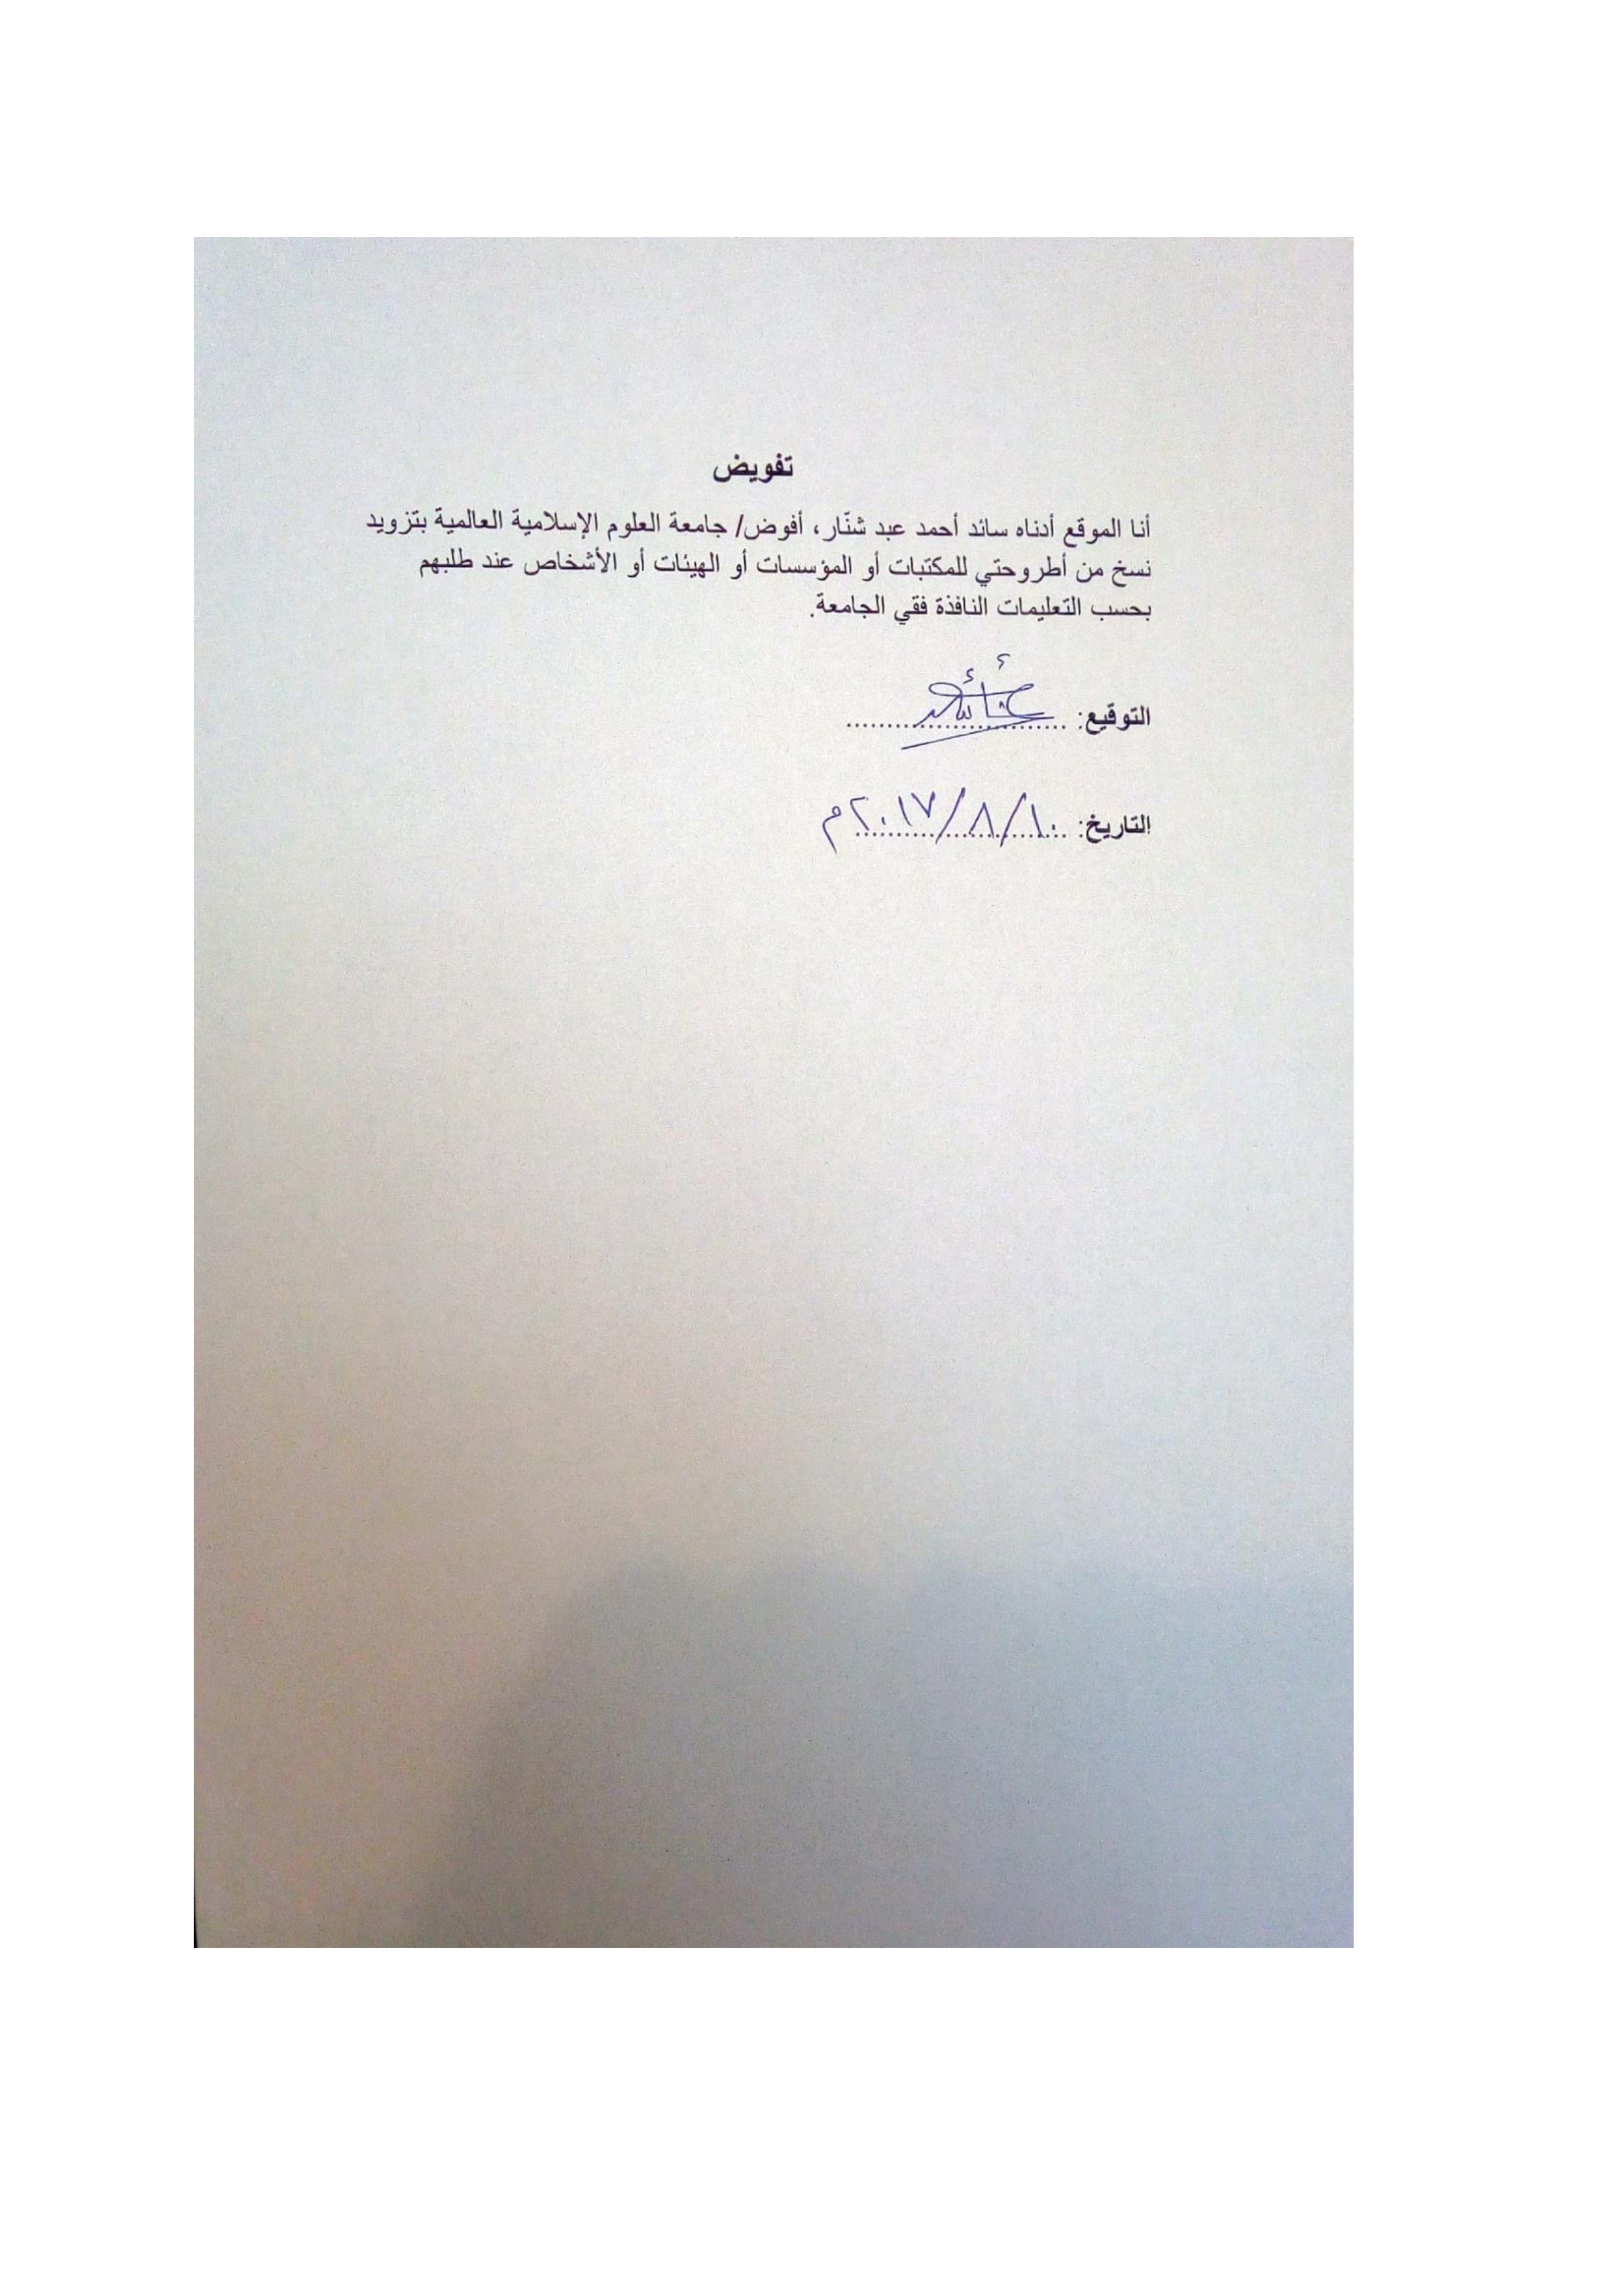 تفويض
أنا الموقع أدناه سائد أحمد عبد شنّار، أفوض/ جامعة العلوم الإسلامية العالمية بتزويد
نسخ من أطروحتي للمكتبات أو المؤسسات أو الهيئات أو الأشخاص عند طلبهم
بحسب التعليمات النافذة فقي الجامعة.
التوقيع:
التاريخ: ١٠/٨/٢٠١٧م